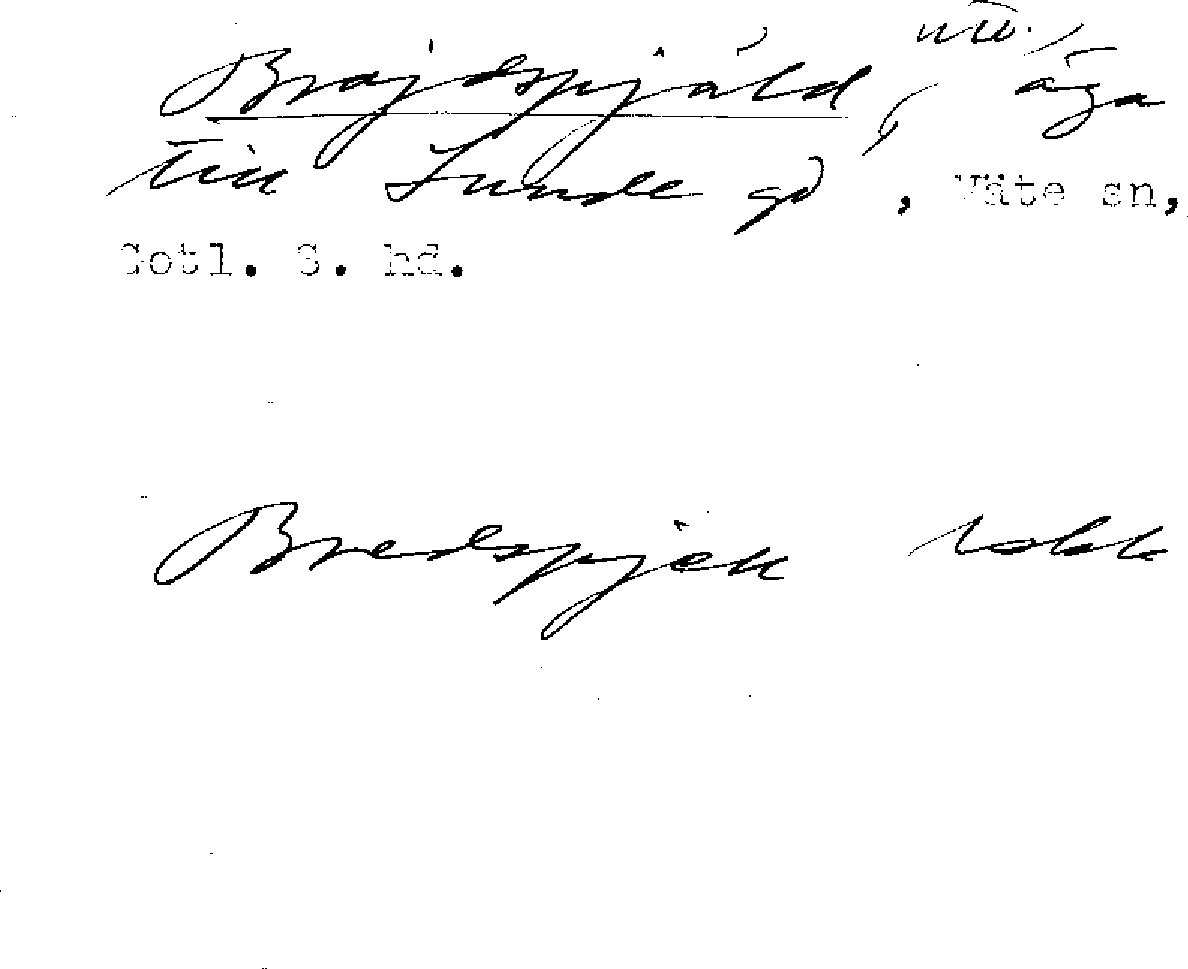 Brajdspjäld, äga
till Sunde gd, Väte sn,
Gotl. S. hd.
Bredspjell